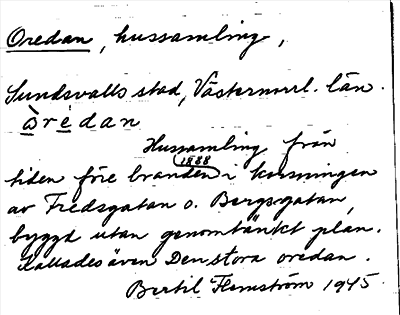 Oredan, hussamling,
Sundsvalls stad, Västernorrl. län.
òredan
Hussamling från
tiden före branden 1888 i korsningen
av Fredsgatan o. Bergsgatan,
byggd utan genomtänkt plan.
Kallades även Den stora oredan.
Bertil Flemström 1945